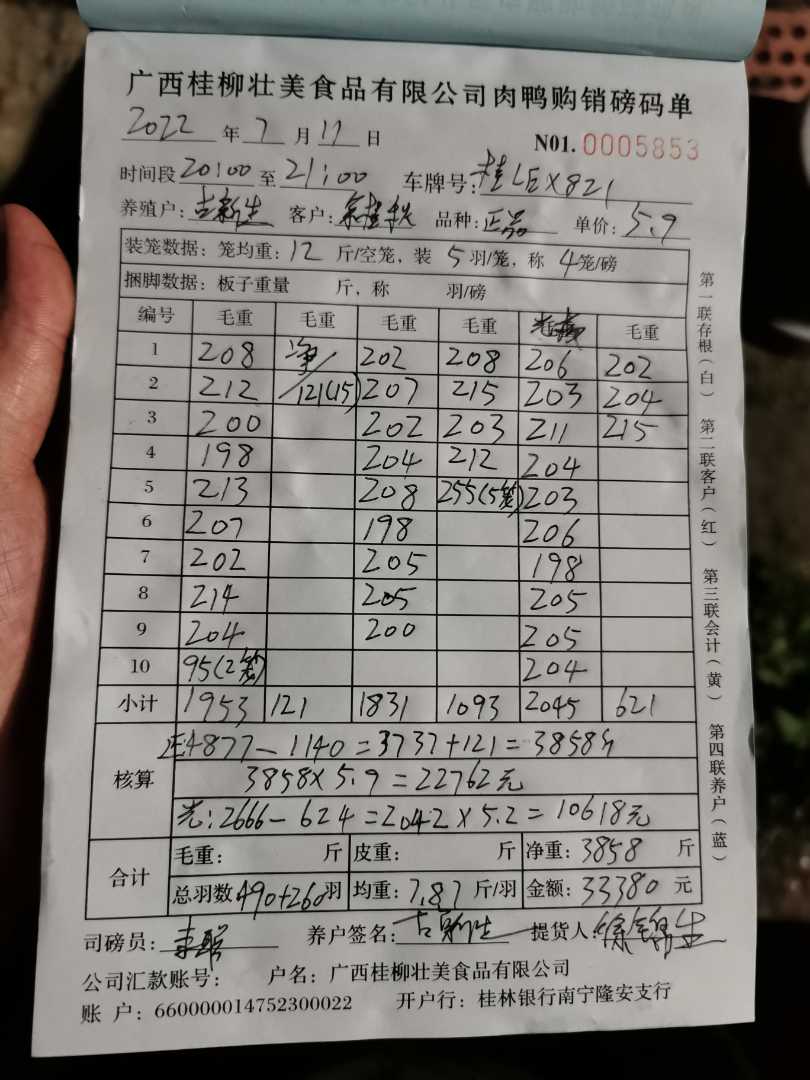 广西桂柳壮美食品有限公司肉鸭购销磅码单
2022 年 7 月 17 日 N01. 0005853
时间段 20:00 至 21:00 车牌号: 桂LEX821
养殖户: 古新生 客户: 品种: 正品 单价: 5.9
装笼数据: 笼均重: 12 斤/空笼, 装 5 羽/笼, 称 4 笼/磅
捆脚数据: 板子重量 斤, 称 羽/磅
编号 毛重 毛重 毛重 毛重 毛重
1 208 净 202 208 206 202
2 212 121(15) 207 215 203 204
3 200 202 203 211 215
4 198 204 212 204
5 213 208 255(5笼) 203
6 207 198 206
7 202 205 198
8 214 205 205
9 204 200 205
10 95(2笼) 204
小计 1953 121 1831 1093 2045 621
核算 正4877-1140=3737+121=3858斤
3858×5.9=22762元
光:2666-624=2042×5.2=10618元
合计 毛重: 斤 皮重: 斤 净重: 3858 斤
总羽数 490+260 羽 均重: 7.87 斤/羽 金额: 33380 元
司磅员: 养户签名: 古新生 提货人:
公司汇款账号: 户名: 广西桂柳壮美食品有限公司
账 户: 660000014752300022 开户行: 桂林银行南宁隆安支行
第一联存根(白) 第二联客户(红) 第三联会计(黄) 第四联养户(蓝)